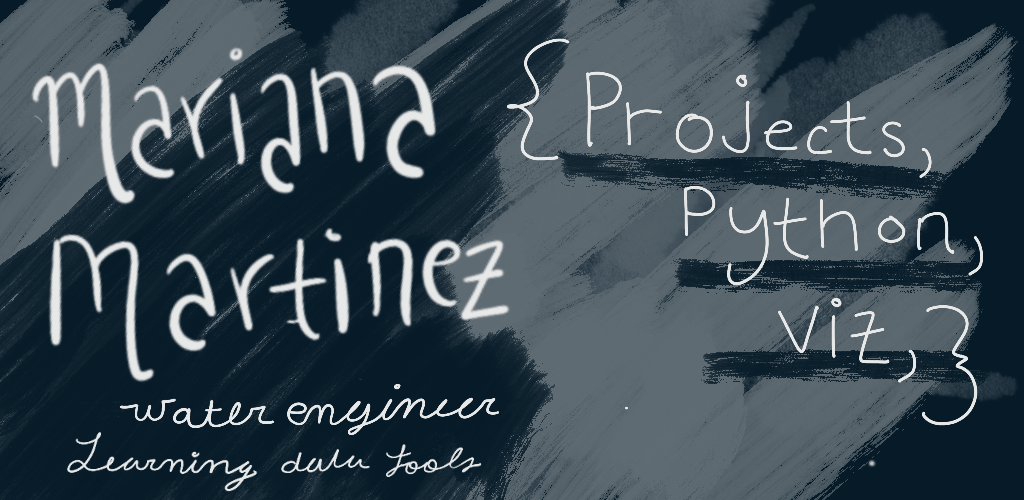 Mariana
Martinez
water engineer
Learning data tools
{ Projects,
Python,
Viz, }